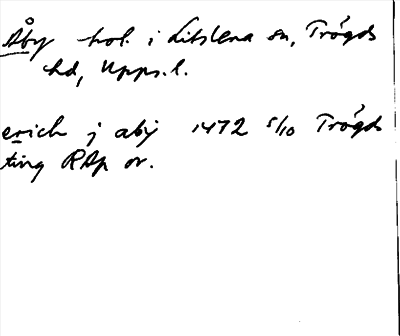 Åby hol. i Litslena sn, Trögds
hd, Upps.l.
erich j abÿ 1472 5/10 Trögds
ting RAp or.